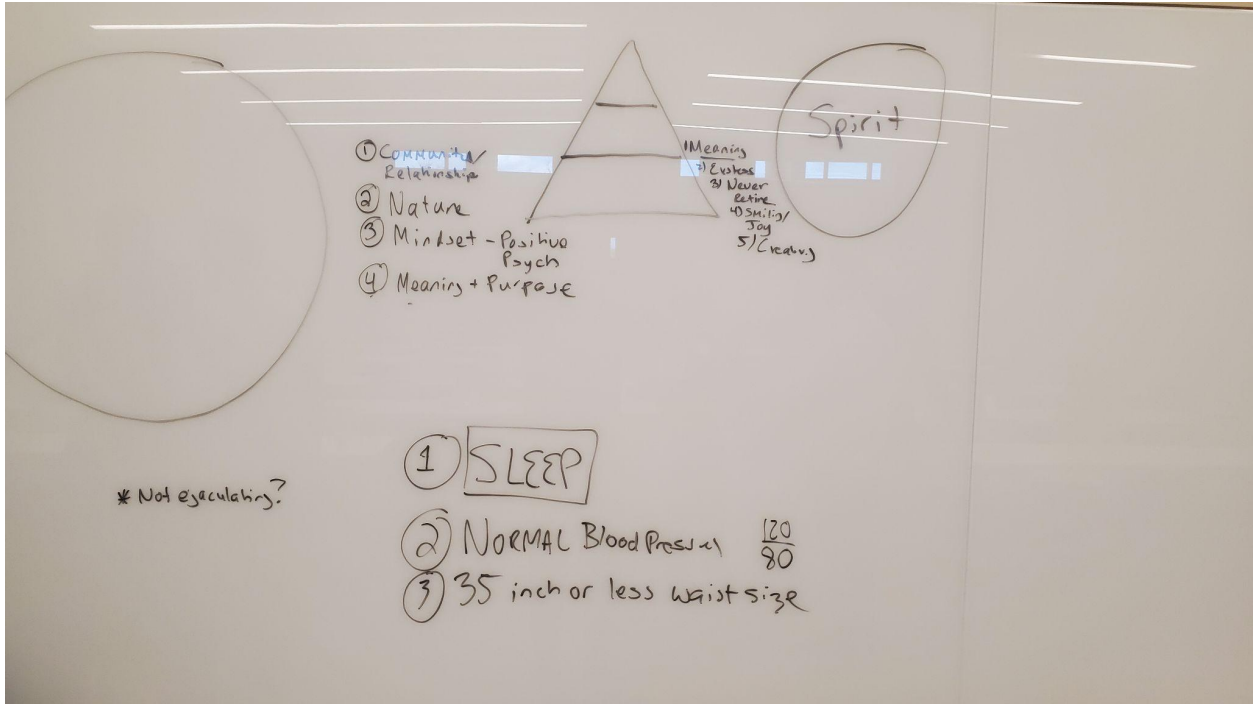 ① Community/
Relationship
② Nature
③ Mindset - Positive
Psych
④ Meaning + Purpose
1 Meaning
2)
3) Never
Retire
4) Smiling/
Joy
5)
Spirit
* Not ejaculating?
① SLEEP
② NORMAL Blood Pressure 120/80
③ 35 inch or less waist size